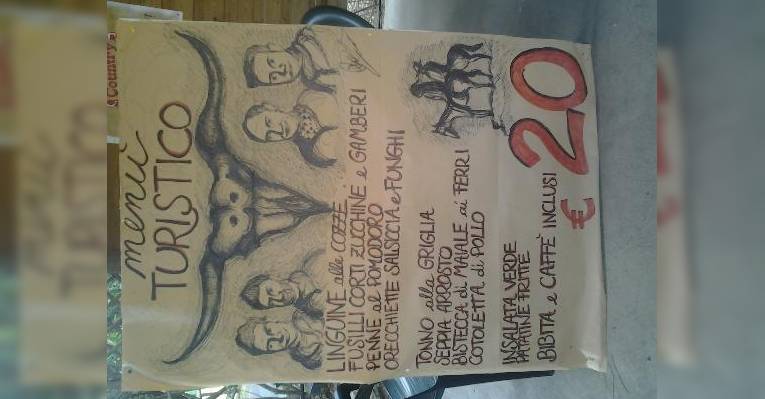 Country
menù
TURISTICO
LINGUINE alle COZZE
FUSILLI CORTI ZUCCHINE e GAMBERI
PENNE al POMODORO
ORECCHIETTE SALSICCIA e FUNGHI
TONNO alla GRIGLIA
SEPPIA ARROSTO
BISTECCA di MAIALE ai FERRI
COTOLETTA di POLLO
INSALATA VERDE
PATATINE FRITTE
BIBITA e CAFFE' INCLUSI
€ 20